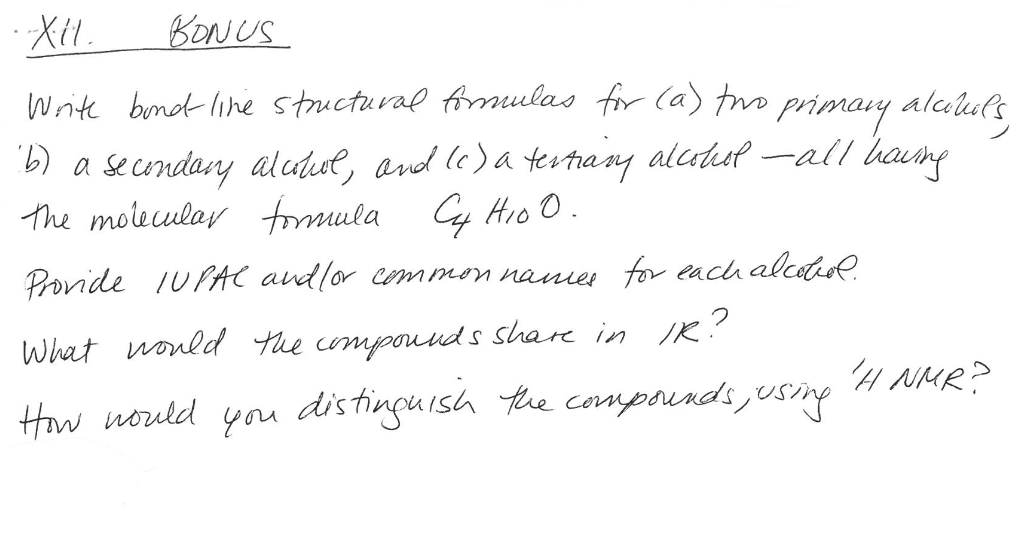 XII. BONUS
Write bond-line structural formulas for (a) two primary alcohols,
b) a secondary alcohol, and (c) a tertiary alcohol — all having
the molecular formula C4H10O.
Provide IUPAC and/or common names for each alcohol.
What would the compounds share in IR?
How would you distinguish the compounds, using 'H NMR?